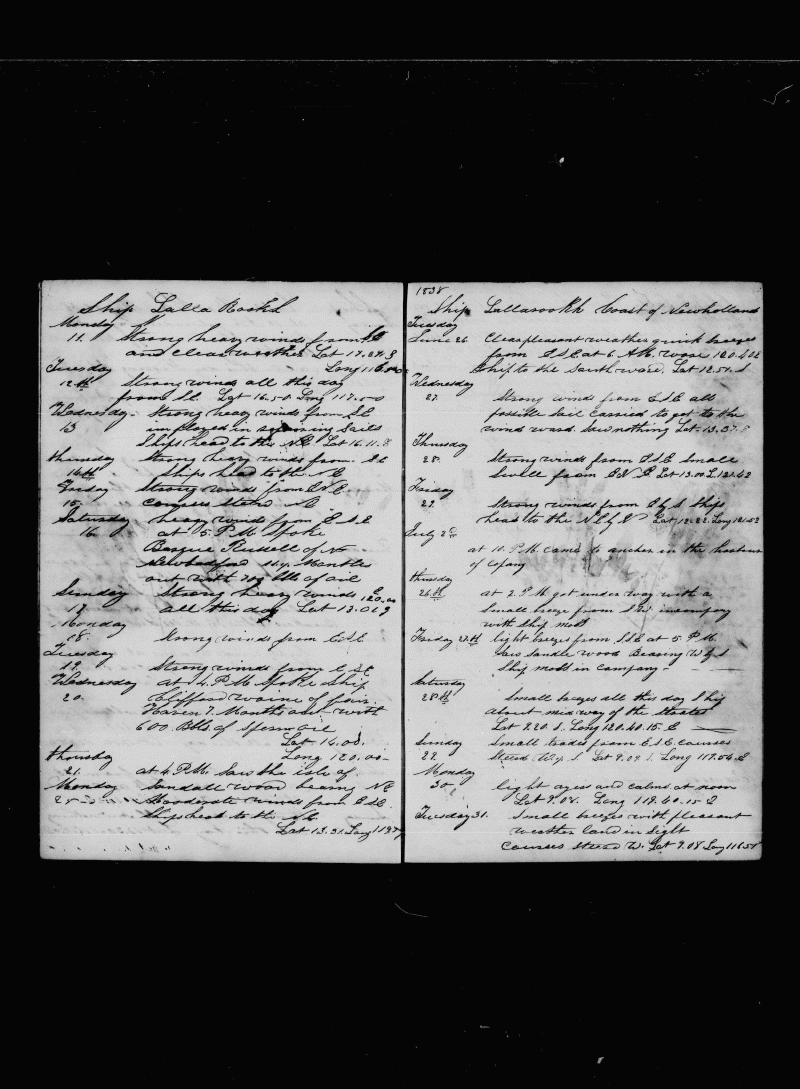 Ship Lalla Rookh
Monday
11. Strong heavy winds from SE
and clear weather Lat 17.27 S
Tuesday Long 116.00
12th Strong winds all this day
from S.E. Lat 16.50 Long 117.50
Wednesday Strong heavy winds from SE
13 imployed in repairing Sails
Ships head to the NE Lat 16.11 S
Thursday Strong heavy winds from SE
14th Ships head to the NE
Friday Strong winds from ESE
15. Courses Steard NE
Saturday heavy wind from E S E
16. at 5 P.M. Spoke
Barque Russell of N
Newbedford 11 Months
out with 700 bbls of oil
Sunday Strong heavy winds E
17 all this day Lat 13.01 120.00
Monday
18. Strong winds from ESE
Tuesday
19. Strong winds from E SE
Wednesday at 4. P.M. Spoke Ship
20. Clifford Waine of fair
Haven 7 Months out with
600 Bbls of Sperm oil
Lat 14.00.
Thursday Long 120.00
21. at 4 P.M. Saw the isle of
Monday Sandall wood bearing NE
25 Moderate winds from ESE
Ships head to the NE
Lat 13.31. Long 119
1838
Ship Lallarookh Coast of Newholland
Tuesday
June 26 Clear pleasant weather quick breezes
from ESE at 6 AM. wore 120.40 E
Ship to the Southward. Lat 12.51. S
Wednesday
27. Strong winds from ESE all
possible Sail Carried to get to the
wind ward Saw nothing Lat 13.37 S
Thursday
28. Strong winds from ESE Small
Swell from E.N.E. Lat 13.00 L 121.42
Friday
29. Strong winds from E by S Ships
head to the N.E. by N Lat 12.22. Long 121.52
July 2d
at 10 P.M. Came to anchor in the harbour
of Copang
Thursday
26th at 2 P.M. got under way with a
Small breeze from SW in company
with Ship moss
Friday 27th light breezes from S.E at 5 P.M.
Saw Sandle wood Bearing W by S
Ship moss in Company
Saturday
28th Small breezes all this day Ship
about midway of the Straites
Lat 9.20 S. Long 120.40.15 E
Sunday Small trades from ESE courses
29. Steard W by S Lat 9.09 S. Long 119.54 E
Monday
30 light ayers and calms at noon
Lat 9.08. Long 119.40.15 E
Tuesday 31. Small breezes with pleasant
weather land in Sight
Courses Steard W. Lat 9.08 Long 116.58